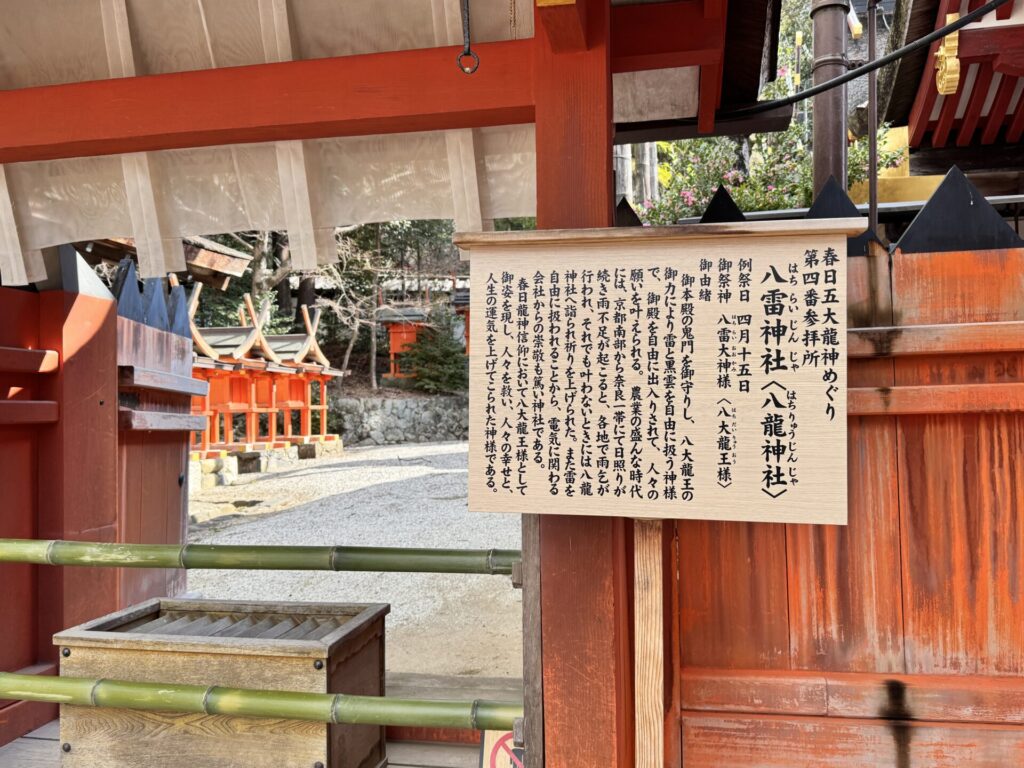 春日五大龍神めぐり
第四番参拝所
八雷神社〈八龍神社〉
はち らい じん じゃ はちりゅうじん じゃ
例祭日 四月十五日
御祭神 八雷大神様〈八大龍王様〉
はちらいおおかみ はちだいりゅうおう
御由緒
御本殿の鬼門を御守りし、八大龍王の
御力により雷と黒雲を自由に扱う神様
で、御殿を自由に出入りされて、人々の
願いを叶えられる。農業の盛んな時代
には、京都南部から奈良一帯にて日照りが
続き雨不足が起こると、各地で雨乞が
行われ、それでも叶わないときには八龍
神社へ詣られ祈りを上げられた。また雷を
自由に扱われることから、電気に関わる
会社からの崇敬も篤い神社である。
春日龍神信仰において八大龍王様として
御姿を現し、人々を救い、人々の幸せと、
人生の運気を上げてこられた神様である。